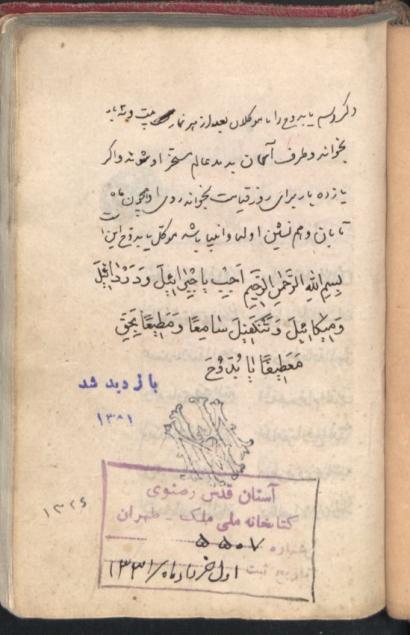 دیگر اسم یا بدوح را با موکلان بعد از هر نماز بیست و نه بار
بخواند و طرف آسمان بدمد عالم مسخر او شوند و اگر
یازده بار برای روز قیامت بخواند روی او همچون ماه
تابان و هم نشین اولیا و انبیا باشد موکل یا بدوح این
بِسمِ اللهِ الرَّحمٰنِ الرَّحیمِ اَجِب یا جِبرائیلَ وَ دَردائیلَ
وَ میکائیلَ وَ تَنکَفیلَ سامِعًا وَ مُطیعًا بِحَقِّ
یا بُدّوحَ
بازدید شد
۱۳۸۱
۱۳۲۶
آستان قدس رضوی
کتابخانه ملی ملک - طهران
شماره ۵۵۰۷
تاریخ ثبت اول خرداد ماه ۱۳۳۱